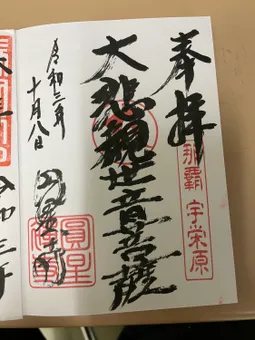 奉拝
那覇 宇栄原
大悲観世音菩薩
令和三年
十月八日
圓星
令和三年